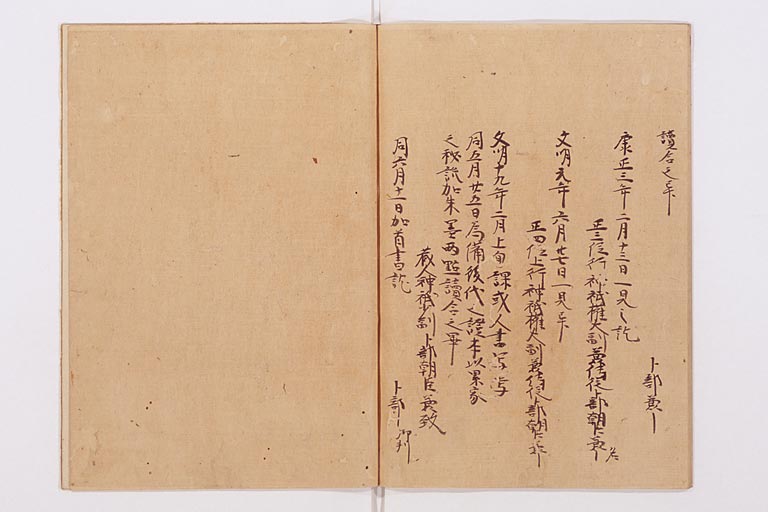 讀合之畢
卜部兼
康正三年二月十三日一見之訖
正三位行神祇權大副兼侍從卜部朝臣兼名
文明元年六月廿七日一見畢
正四位上行神祇權大副兼侍從卜部朝臣
文明十九年二月上旬課或人書寫
同五月廿五日為備後代之證本以累家
之秘説加朱墨两點讀合之畢
蔵人神祇少副卜部朝臣兼致
同六月十一日加首書訖
卜部御判